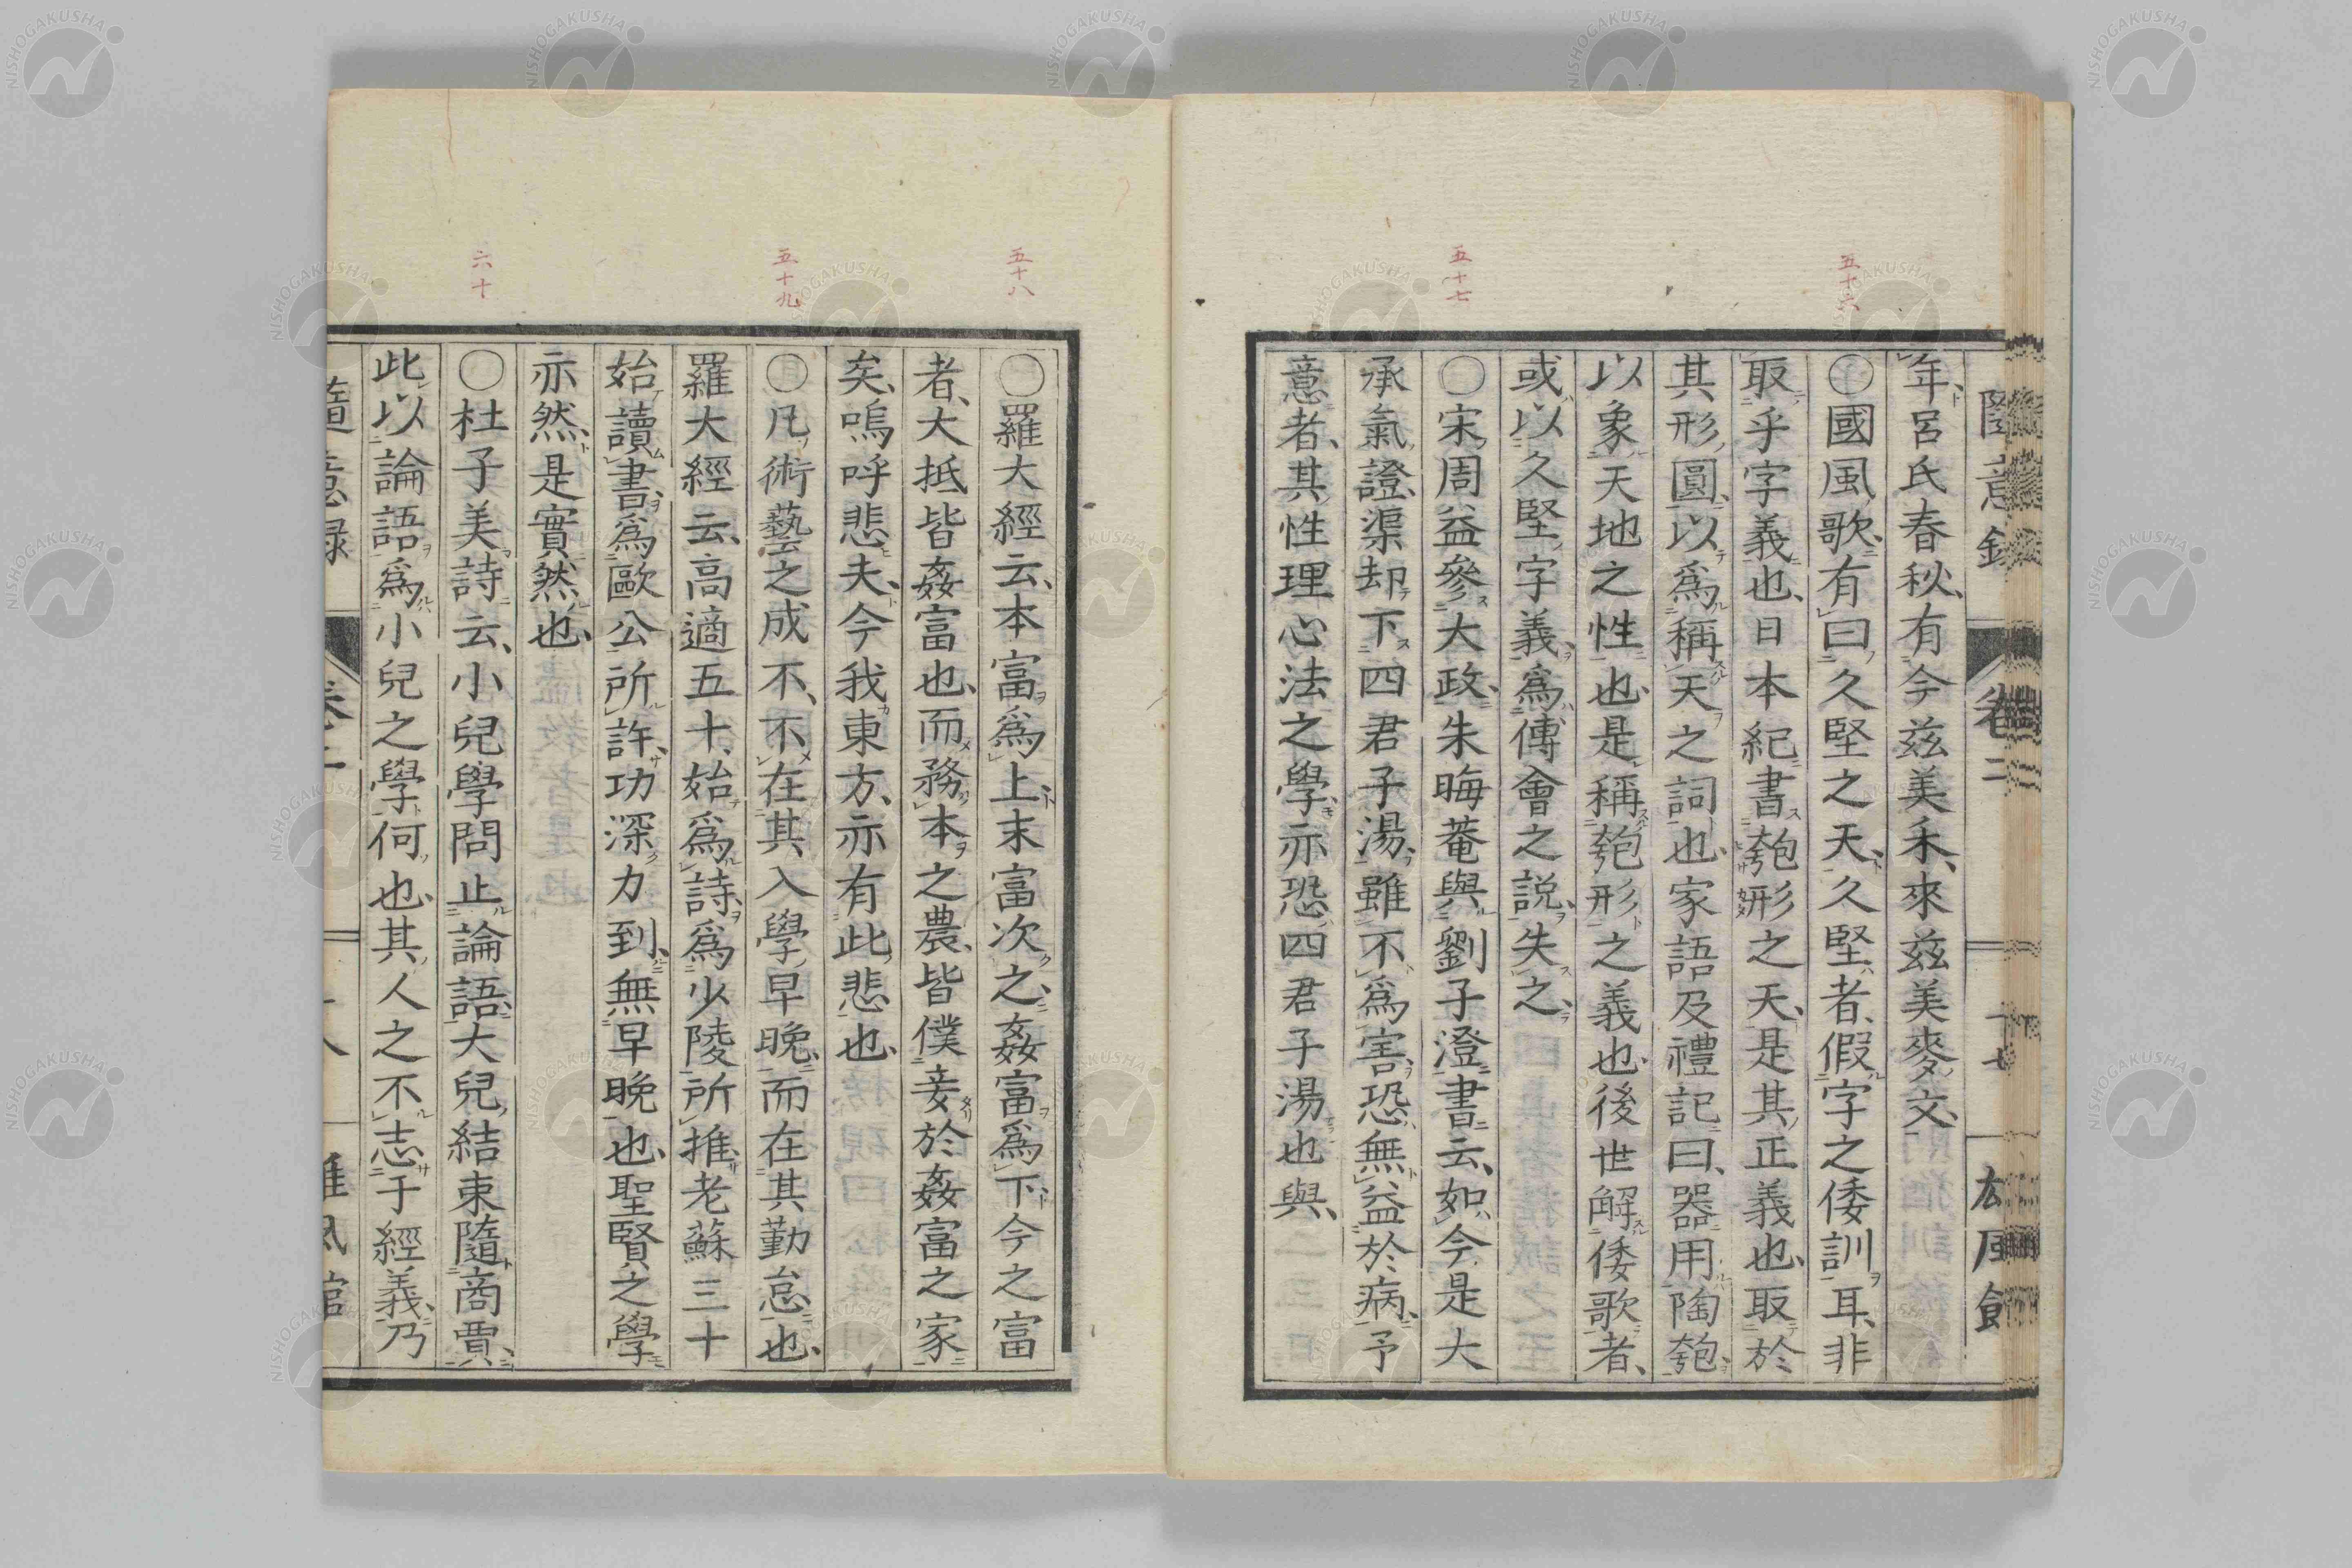 隨意錄 卷二 十七
年、呂氏春秋、有今茲美禾、來茲美麥文、
五十六
〇國風歌、有曰久堅之天、久堅者、假字之倭訓耳、非
取乎字義也、日本紀書匏形之天、是其正義也、取於
其形圓、以爲稱天之詞也、家語及禮記曰、器用陶匏、
以象天地之性也、是稱匏形之義也、後世解倭歌者、
或以久堅字義、爲傅會之説、失之、
五十七
〇宋周益參大政、朱晦菴與劉子澄書云、如今是大
承氣證、渠却下四君子湯、雖不爲害、恐無益於病、予
意者、其性理心法之學、亦恐四君子湯也與、
五十八
〇羅大經云、本富爲上、末富次之、姦富爲下、今之富
者、大抵皆姦富也、而務本之農、皆僕妾於姦富之家
矣、嗚呼悲夫、今我東方、亦有此悲也、
五十九
〇凡術藝之成不、不在其入學早晚、而在其勤怠也、
羅大經云、高適五十、始爲詩、爲少陵所推、老蘇三十
始讀書、爲歐公所許、功深力到、無早晚也、聖賢之學
亦然、是實然也、
六十
〇杜子美詩云、小兒學問止論語、大兒結束隨商賈、
此以論語爲小兒之學、何也、其人之不志于經義、乃
隨意録 卷二